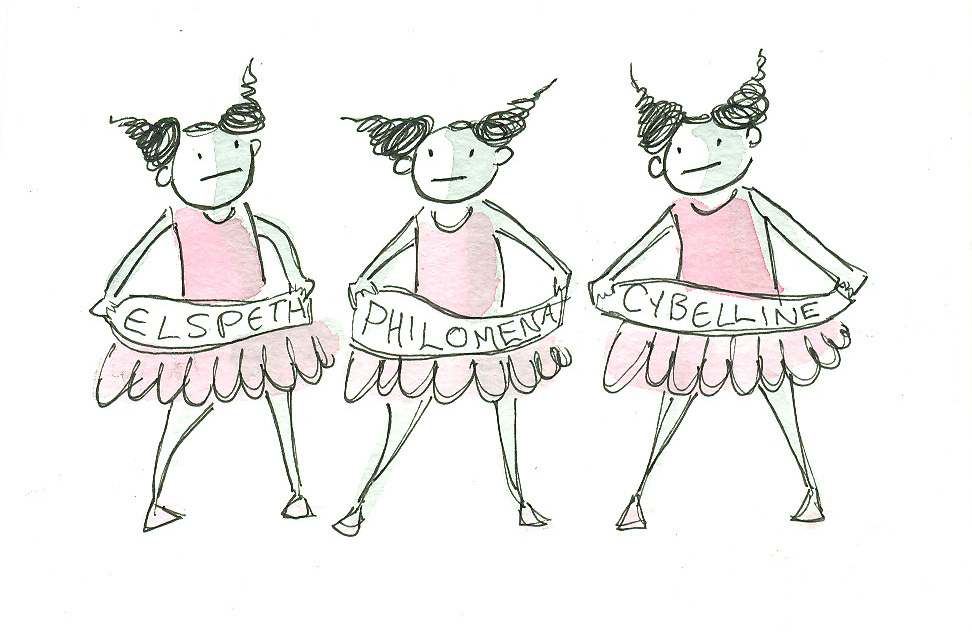 ELSPETH
PHILOMENA
CYBELLINE